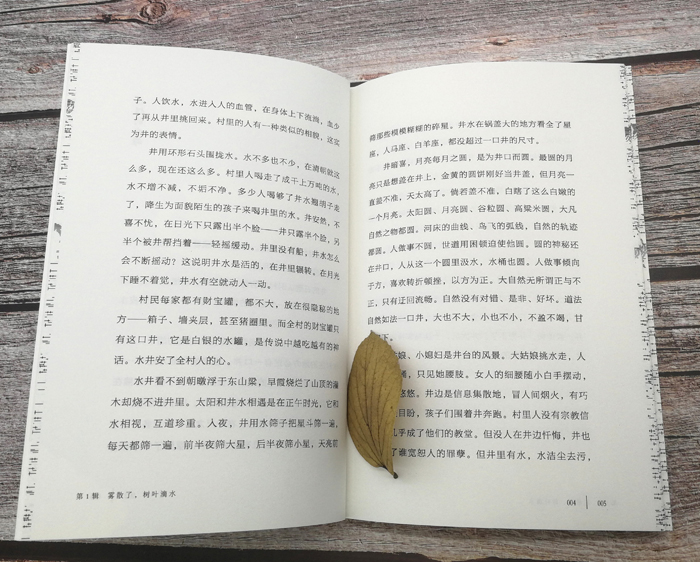 子。人饮水，水进入人的血管，在身体上下流淌，血少
了再从井里挑回来。村里的人有一种类似的相貌，这实
为井的表情。
井用环形石头围拢水。水不多也不少，在清朝就这
么多，现在还这么多。村里人喝走了成千上万吨的水，
水不增不减，不垢不净。多少人喝够了井水翘胡子走
了，降生为面貌陌生的孩子来喝井里的水。井安然，不
喜不忧，在日光下只露出半个脸——井只露半个脸，另
半个被井帮挡着——轻摇缓动。井里没有船，井水怎么
会不断摇动？这说明井水是活的，在井里辗转，在月光
下睡不着觉，井水有空就动人一动。
村民每家都有财宝罐，都不大，放在很隐秘的地
方——箱子、墙夹层，甚至猪圈里。而全村的财宝罐只
有这口井，它是白银的水罐，是传说中越吃越有的神
话。水井安了全村人的心。
水井看不到朝暾浮于东山梁，早霞烧烂了山顶的灌
木却烧不进井里。太阳和井水相遇是在正午时光，它和
水相视，互道珍重。入夜，井用水筛子把星斗筛一遍，
每天都筛一遍，前半夜筛大星，后半夜筛小星，天亮前
第1辑 雾散了，树叶滴水
筛那些模模糊糊的碎星。井水在锅盖大的地方看全了星
座，人马座、白羊座，都没超过一口井的尺寸。
井暗喜，月亮每月之圆，是为井口而圆。最圆的月
亮只是想盖在井上，金黄的圆饼刚好当井盖，但月亮一
直盖不准，天太高了。倘若盖不准，白瞎了这么白嫩的
一个月亮。太阳圆、月亮圆、谷粒圆、高粱米圆，大凡
自然之物都圆。河床的曲线、鸟飞的弧线，自然的轨迹
都圆。人做事不圆，世道用困顿迫使他圆。圆的神秘还
在井口，人从这一个圆里汲水，水桶也圆。人做事倾向
于方，喜欢转折顿挫，以方为正。大自然无所谓正与不
正，只有迂回流畅。自然没有对错、是非、好坏。道法
自然如法一口井，大也不大，小也不小，不盈不竭，甘
下。
姑娘，小媳妇是井台的风景。大姑娘挑水走，人
桶，只见她腰肢。女人的细腰随小白手摆动，
悠悠。井边是信息集散地，冒人间烟火，有巧
目盼，孩子们围着井奔跑。村里人没有宗教信
几乎成了他们的教堂。但没人在井边忏悔，井也
谁宽恕人的罪孽。但井里有水，水洁尘去污，
004 005